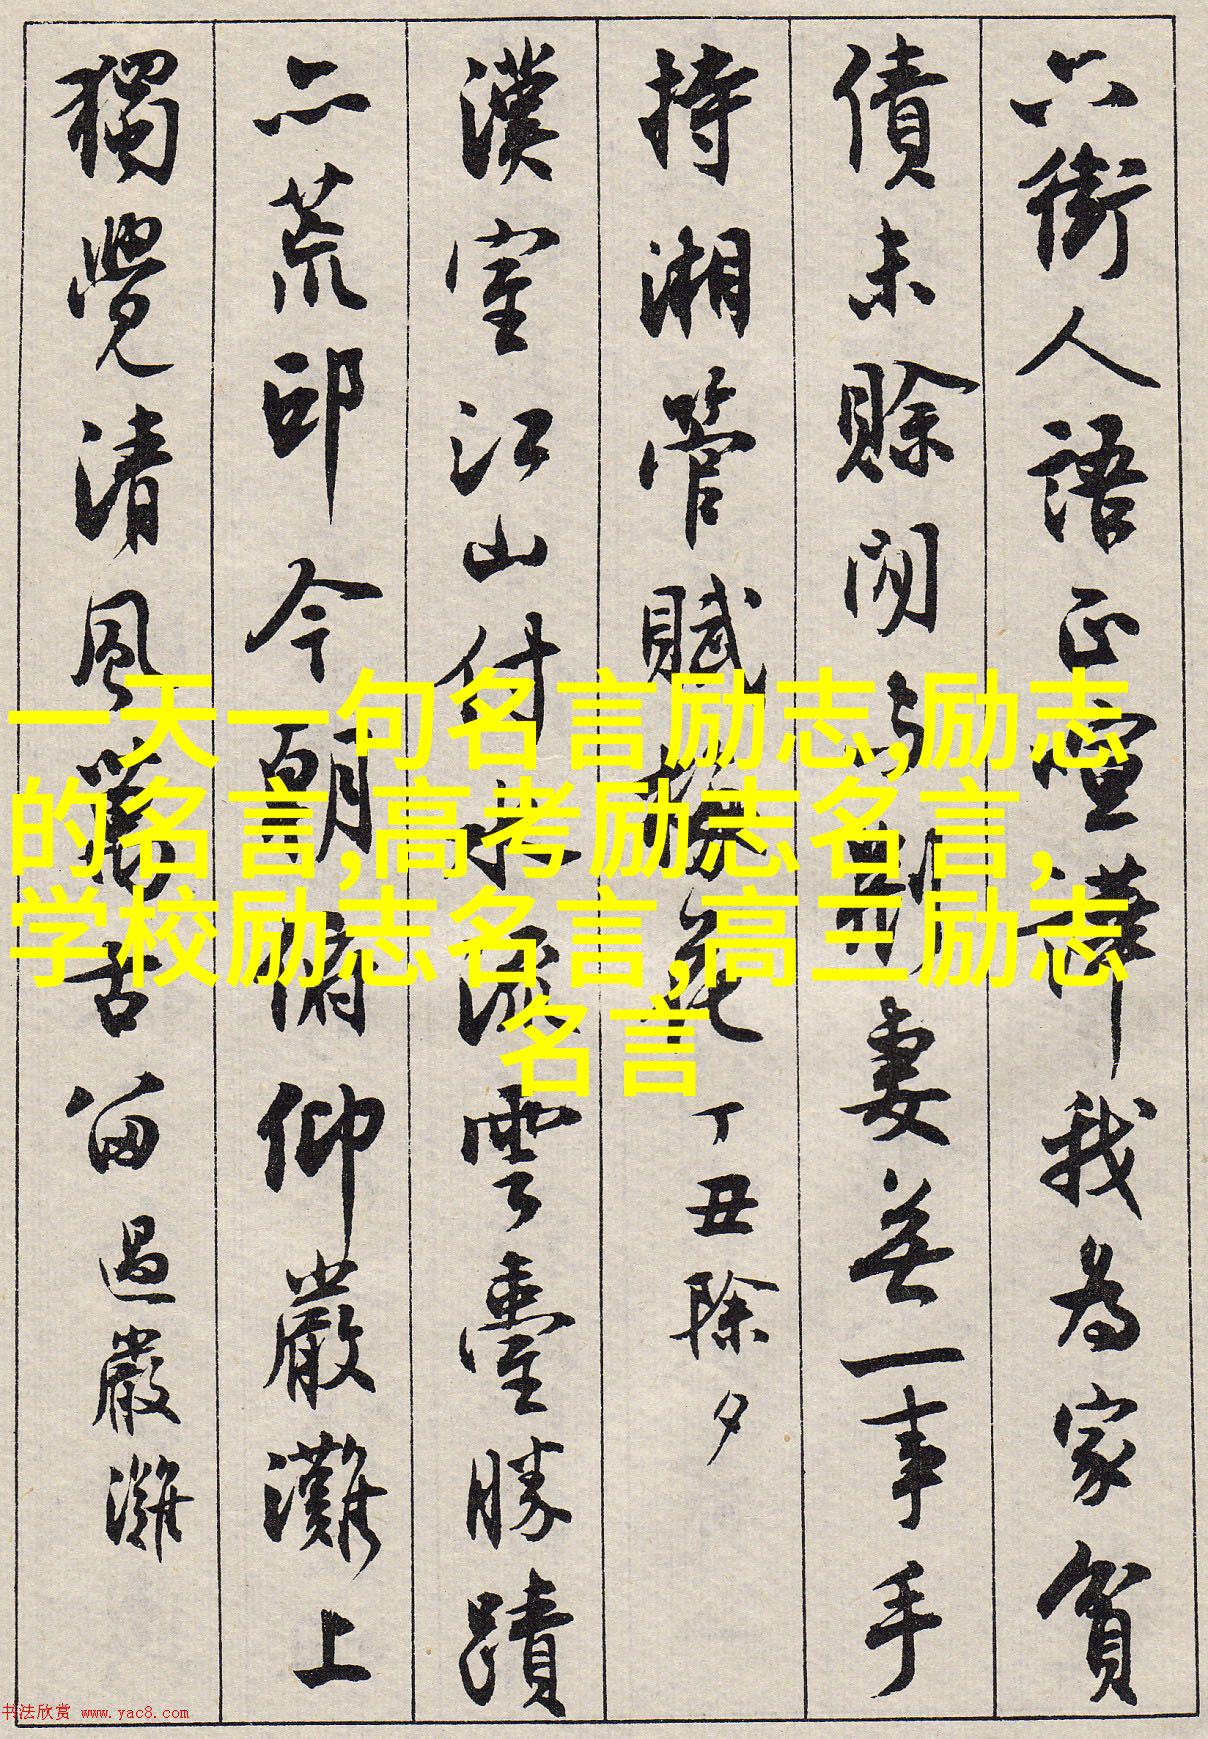 六街人語正喧譁我為家貧
債未賒閒与荊妻無一事手
持湘管賦梅花 丁丑除夕
漢室江山付流雲臺勝蹟
亦荒邱今朝俯仰嚴灘上
獨覺清風萬古留 過嚴灘
一天一句名言励志,励志
的名言,高考励志名言,
学校励志名言,高三励志
名言
书法欣赏 www.yac8.com